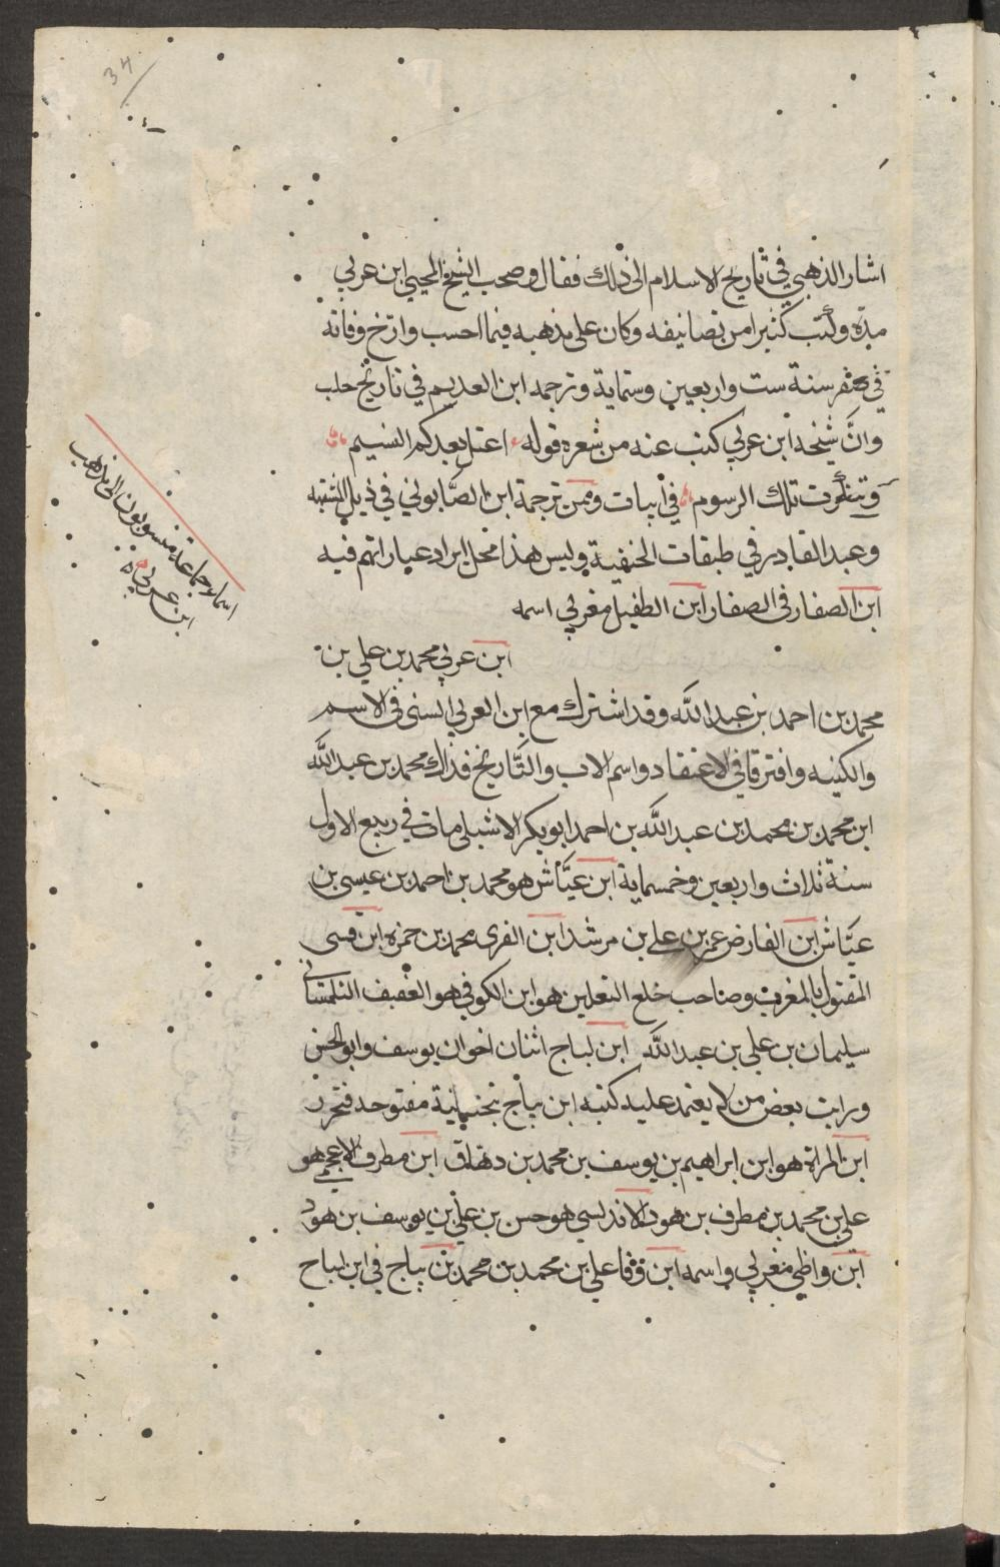 34
اشار الذهبي في تاريخ الاسلام الى ذلك فقال وصحب الشيخ المحيي ابن عربي
مدة وكتب كثيرا من تصانيفه وكان على مذهبه فيما احسب وارخ وفاته
في صفر سنة ست واربعين وستماية وترجمه ابن العديم في تاريخ حلب
وانَّ شيخه ابن عربي كتب عنه من شعره قوله اعتل بعدكم النسيم
وتنكرت تلك الرسوم في ابيات وممن ترجمه ابن الصَّابوني في ذيل المشتبه
وعبد القادر في طبقات الحنفية وليس هذا محل ايراد عباراتهم فيه
ابن الصفار في الصفار ابن الطفيل مغربي اسمه
ابن عربي محمد بن علي بن
محمد بن احمد بن عبد الله وقد اشترك مع ابن العربي السني في الاسم
والكنيه وافترقا في الاعتقاد واسم الاب والتَّاريخ فذاك محمد بن عبد الله
ابن محمد بن محمد بن عبد الله بن احمد ابو بكر الاشبيلي مات في ربيع الاول
سنة ثلاث واربعين وخمسماية ابن عيَّاش هو محمد بن احمد بن عيسى بن
عيَّاش ابن الفارض عمر بن علي بن مرشد ابن الفرى محمد بن حمزه ابن قسى
المقتول بالمغرب وصاحب خلع النعلين هو ابن الكوفي هو العفيف التلمسانى
سليمان بن علي بن عبد الله ابن لباج اثنان اخوان يوسف وابو الحسن
ورايت بعض من لا يعتمد عليه كتبه ابن بياج بتحتانية مفتوحه فتحرر
ابن المراة هو ابن ابراهيم بن يوسف بن محمد بن دهاق ابن مطرف الاعمى هو
علي بن محمد بن مطرف بن هود الاندلسي هو حسن بن علي بن يوسف بن هود
ابن واطي مغربي واسمه ابن وفا علي بن محمد بن محمد بن بياج في ابن لباح
اسماء جماعة منسوبون الى مذهب
ابن عربي